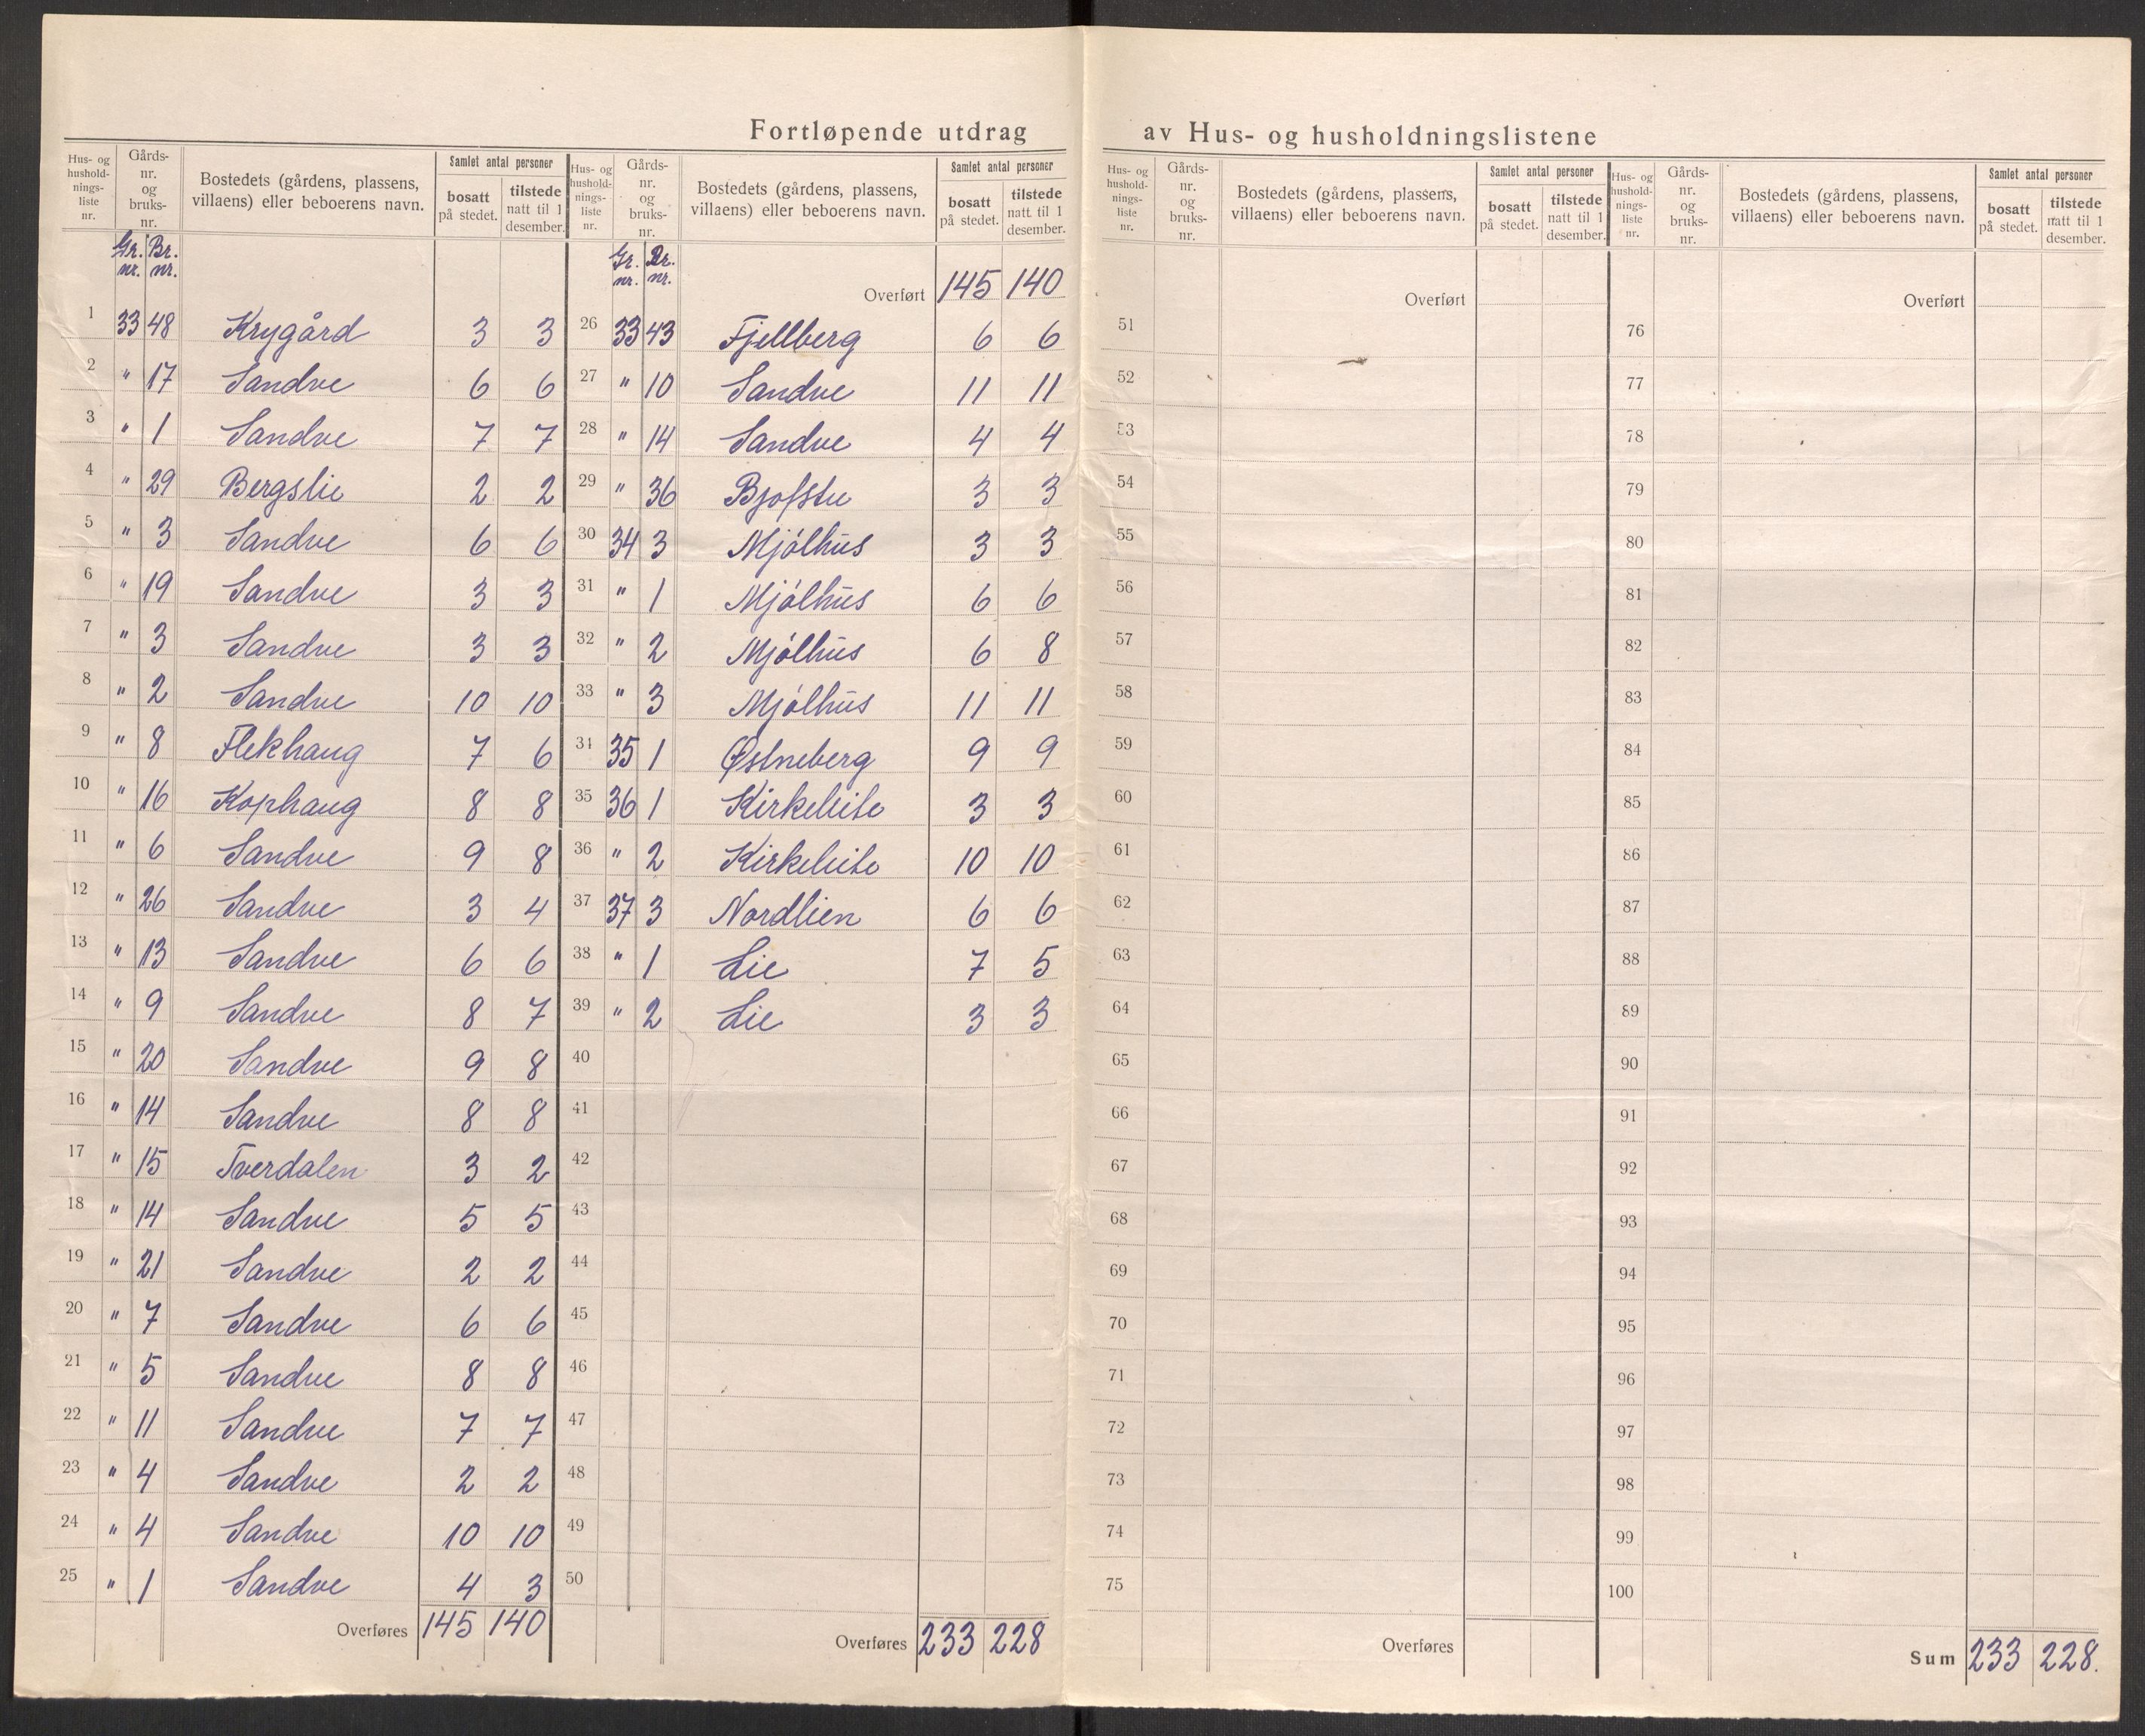 Fortløpende utdrag av Hus- og husholdningslistene
Hus- og hushold-nings-liste nr. Gårds-nr. og bruks-nr. Bostedets (gårdens, plassens, villaens) eller beboerens navn. Samlet antal personer bosatt på stedet. tilstede natt til 1 desember.
Gr. nr. Br. nr.
1 33 48 Krygård 3 3
2 " 17 Sandve 6 6
3 " 1 Sandve 7 7
4 " 29 Bergslie 2 2
5 " 3 Sandve 6 6
6 " 19 Sandve 3 3
7 " 3 Sandve 3 3
8 " 2 Sandve 10 10
9 " 8 Flekhaug 7 6
10 " 16 Kophaug 8 8
11 " 6 Sandve 9 8
12 " 26 Sandve 3 4
13 " 13 Sandve 6 6
14 " 9 Sandve 8 7
15 " 20 Sandve 9 8
16 " 14 Sandve 8 8
17 " 15 Tverdalen 3 2
18 " 14 Sandve 5 5
19 " 21 Sandve 2 2
20 " 7 Sandve 6 6
21 " 5 Sandve 8 8
22 " 11 Sandve 7 7
23 " 4 Sandve 2 2
24 " 4 Sandve 10 10
25 " 1 Sandve 4 3
Overføres 145 140
Hus- og hushold-nings-liste nr. Gårds-nr. og bruks-nr. Bostedets (gårdens, plassens, villaens) eller beboerens navn. Samlet antal personer bosatt på stedet. tilstede natt til 1 desember.
Gr. nr. Br. nr.
Overført 145 140
26 33 43 Fjellberg 6 6
27 " 10 Sandve 11 11
28 " 14 Sandve 4 4
29 " 36 3 3
30 34 3 Mjølhus 3 3
31 " 1 Mjølhus 6 6
32 " 2 Mjølhus 6 8
33 " 3 Mjølhus 11 11
34 35 1 Østneberg 9 9
35 36 1 Kirkeleite 3 3
36 " 2 Kirkeleite 10 10
37 37 3 Nordlien 6 6
38 " 1 Lie 7 5
39 " 2 Lie 3 3
40
41
42
43
44
45
46
47
48
49
50
Overføres 233 228
Hus- og hushold-nings-liste nr. Gårds-nr. og bruks-nr. Bostedets (gårdens, plassens, villaens) eller beboerens navn. Samlet antal personer bosatt på stedet. tilstede natt til 1 desember.
Overført
51
52
53
54
55
56
57
58
59
60
61
62
63
64
65
66
67
68
69
70
71
72
73
74
75
Overføres
Hus- og hushold-nings-liste nr. Gårds-nr. og bruks-nr. Bostedets (gårdens, plassens, villaens) eller beboerens navn. Samlet antal personer bosatt på stedet. tilstede natt til 1 desember.
Overført
76
77
78
79
80
81
82
83
84
85
86
87
88
89
90
91
92
93
94
95
96
97
98
99
100
Sum 233 228.